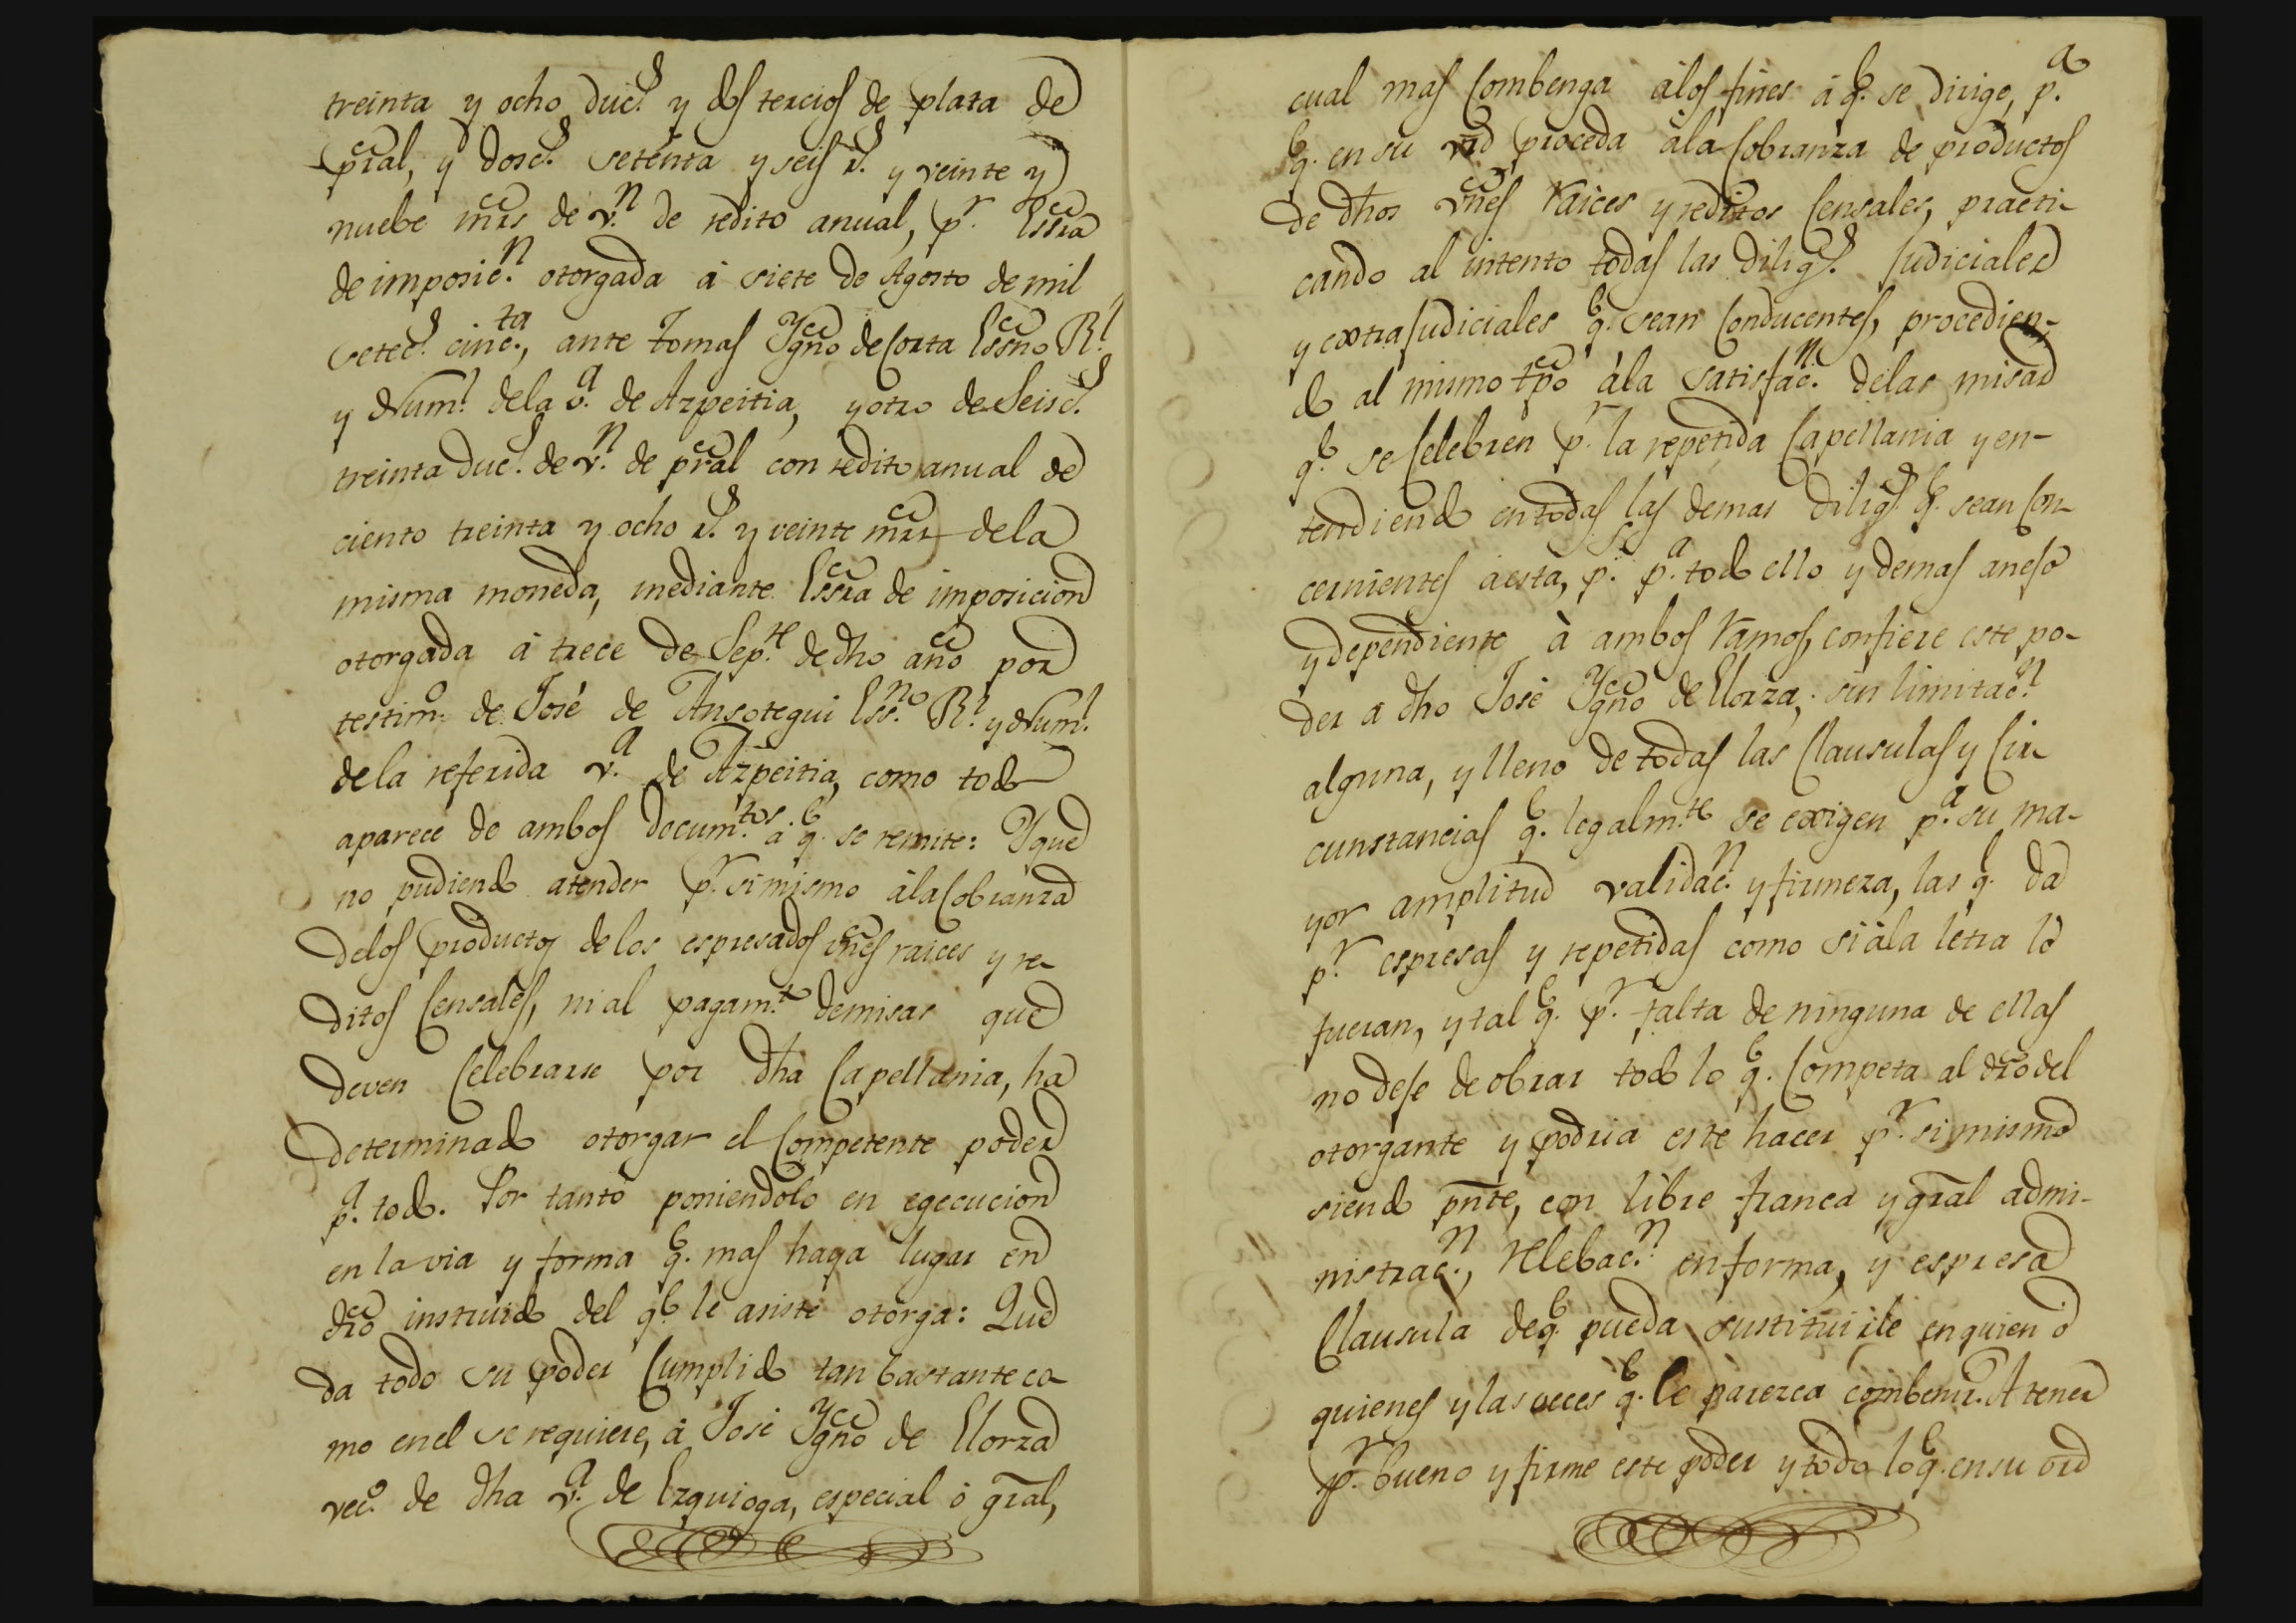 treinta y ocho duc.s y dos tercios de plata de
pral, y dosc.s setenta y seis r.s y veinte y
nuebe mrs de v.n de redito anual, p.r Essra
de imposic.n otorgada á siete de Agosto de mil
setec.s cinc.ta, ante Tomas Ygno de Corta Essno R.l
y Num.l dela v.a de Azpeitia, y otro de Seisc.s
treinta duc.s de v.n de pral con redito anual de
ciento treinta y ocho r.s y veinte mrs dela
misma moneda, mediante Essra de imposicion
otorgada á trece de Sep.te de dho año por
testim.o de José de Ansotegui Ess.no R.l y Num.l
dela referida v.a de Azpeitia, como todo
aparece de ambos docum.tos á q.e se remite: Y que
no pudiendo atender p.r si mismo ála Cobranza
delos productos de los espresados vnes raices y re-
ditos Censales, ni al pagam.to de misas que
deven Celebrarse por dha Capellania, ha
determinado otorgar el Competente poder
p.a todo. Por tanto poniendolo en egecucion
en la via y forma q.e mas haga lugar en
dro instruido del q.e le asiste otorga: Que
da todo su poder Cumplido tan bastante co-
mo en el se requiere, á José Ygno de Elorza
vec.o de dha v.a de Ezquioga, especial ó gral,
cual mas Combenga álos fines á q.e se dirige, p.a
q.e en su vrd proceda ála Cobranza de productos
de dhos vnes raices y reditos Censales, practi-
cando al intento todas las dilig.s Judiciales
y extraJudiciales q.e sean Conducentes, procedien-
do al mismo tpo ála satisfac.n delas misas
q.e se Celebren p.r la repetida Capellania y en-
tendiendo en todas las demas dilig.s q.e sean Con-
cernientes á esta, p.s p.a todo ello y demas anejo
y dependiente à ambos ramos, confiere este po-
der á dho José Ygno de Elorza, sin limitac.n
alguna, y lleno de todas las Clausulas y Cir-
cunstancias q.e legalm.te se exigen p.a su ma-
yor amplitud validac.n y firmeza, las q.e da
p.r espresas y repetidas como si ála letra lo
fueran, y tal q.e p.r falta de ninguna de ellas
no deje de obrar todo lo q.e Competa al dro del
otorgante y podria este hacer p.r si mismo
siendo pnte, con libre franca y gral admi-
nistrac.n, relebac.n en forma, y espresa
Clausula de q.e pueda sustituirle en quien ó
quienes y las veces q.e le parezca combenir. A tener
p.r bueno y firme este poder y todo lo q.e en su vrd